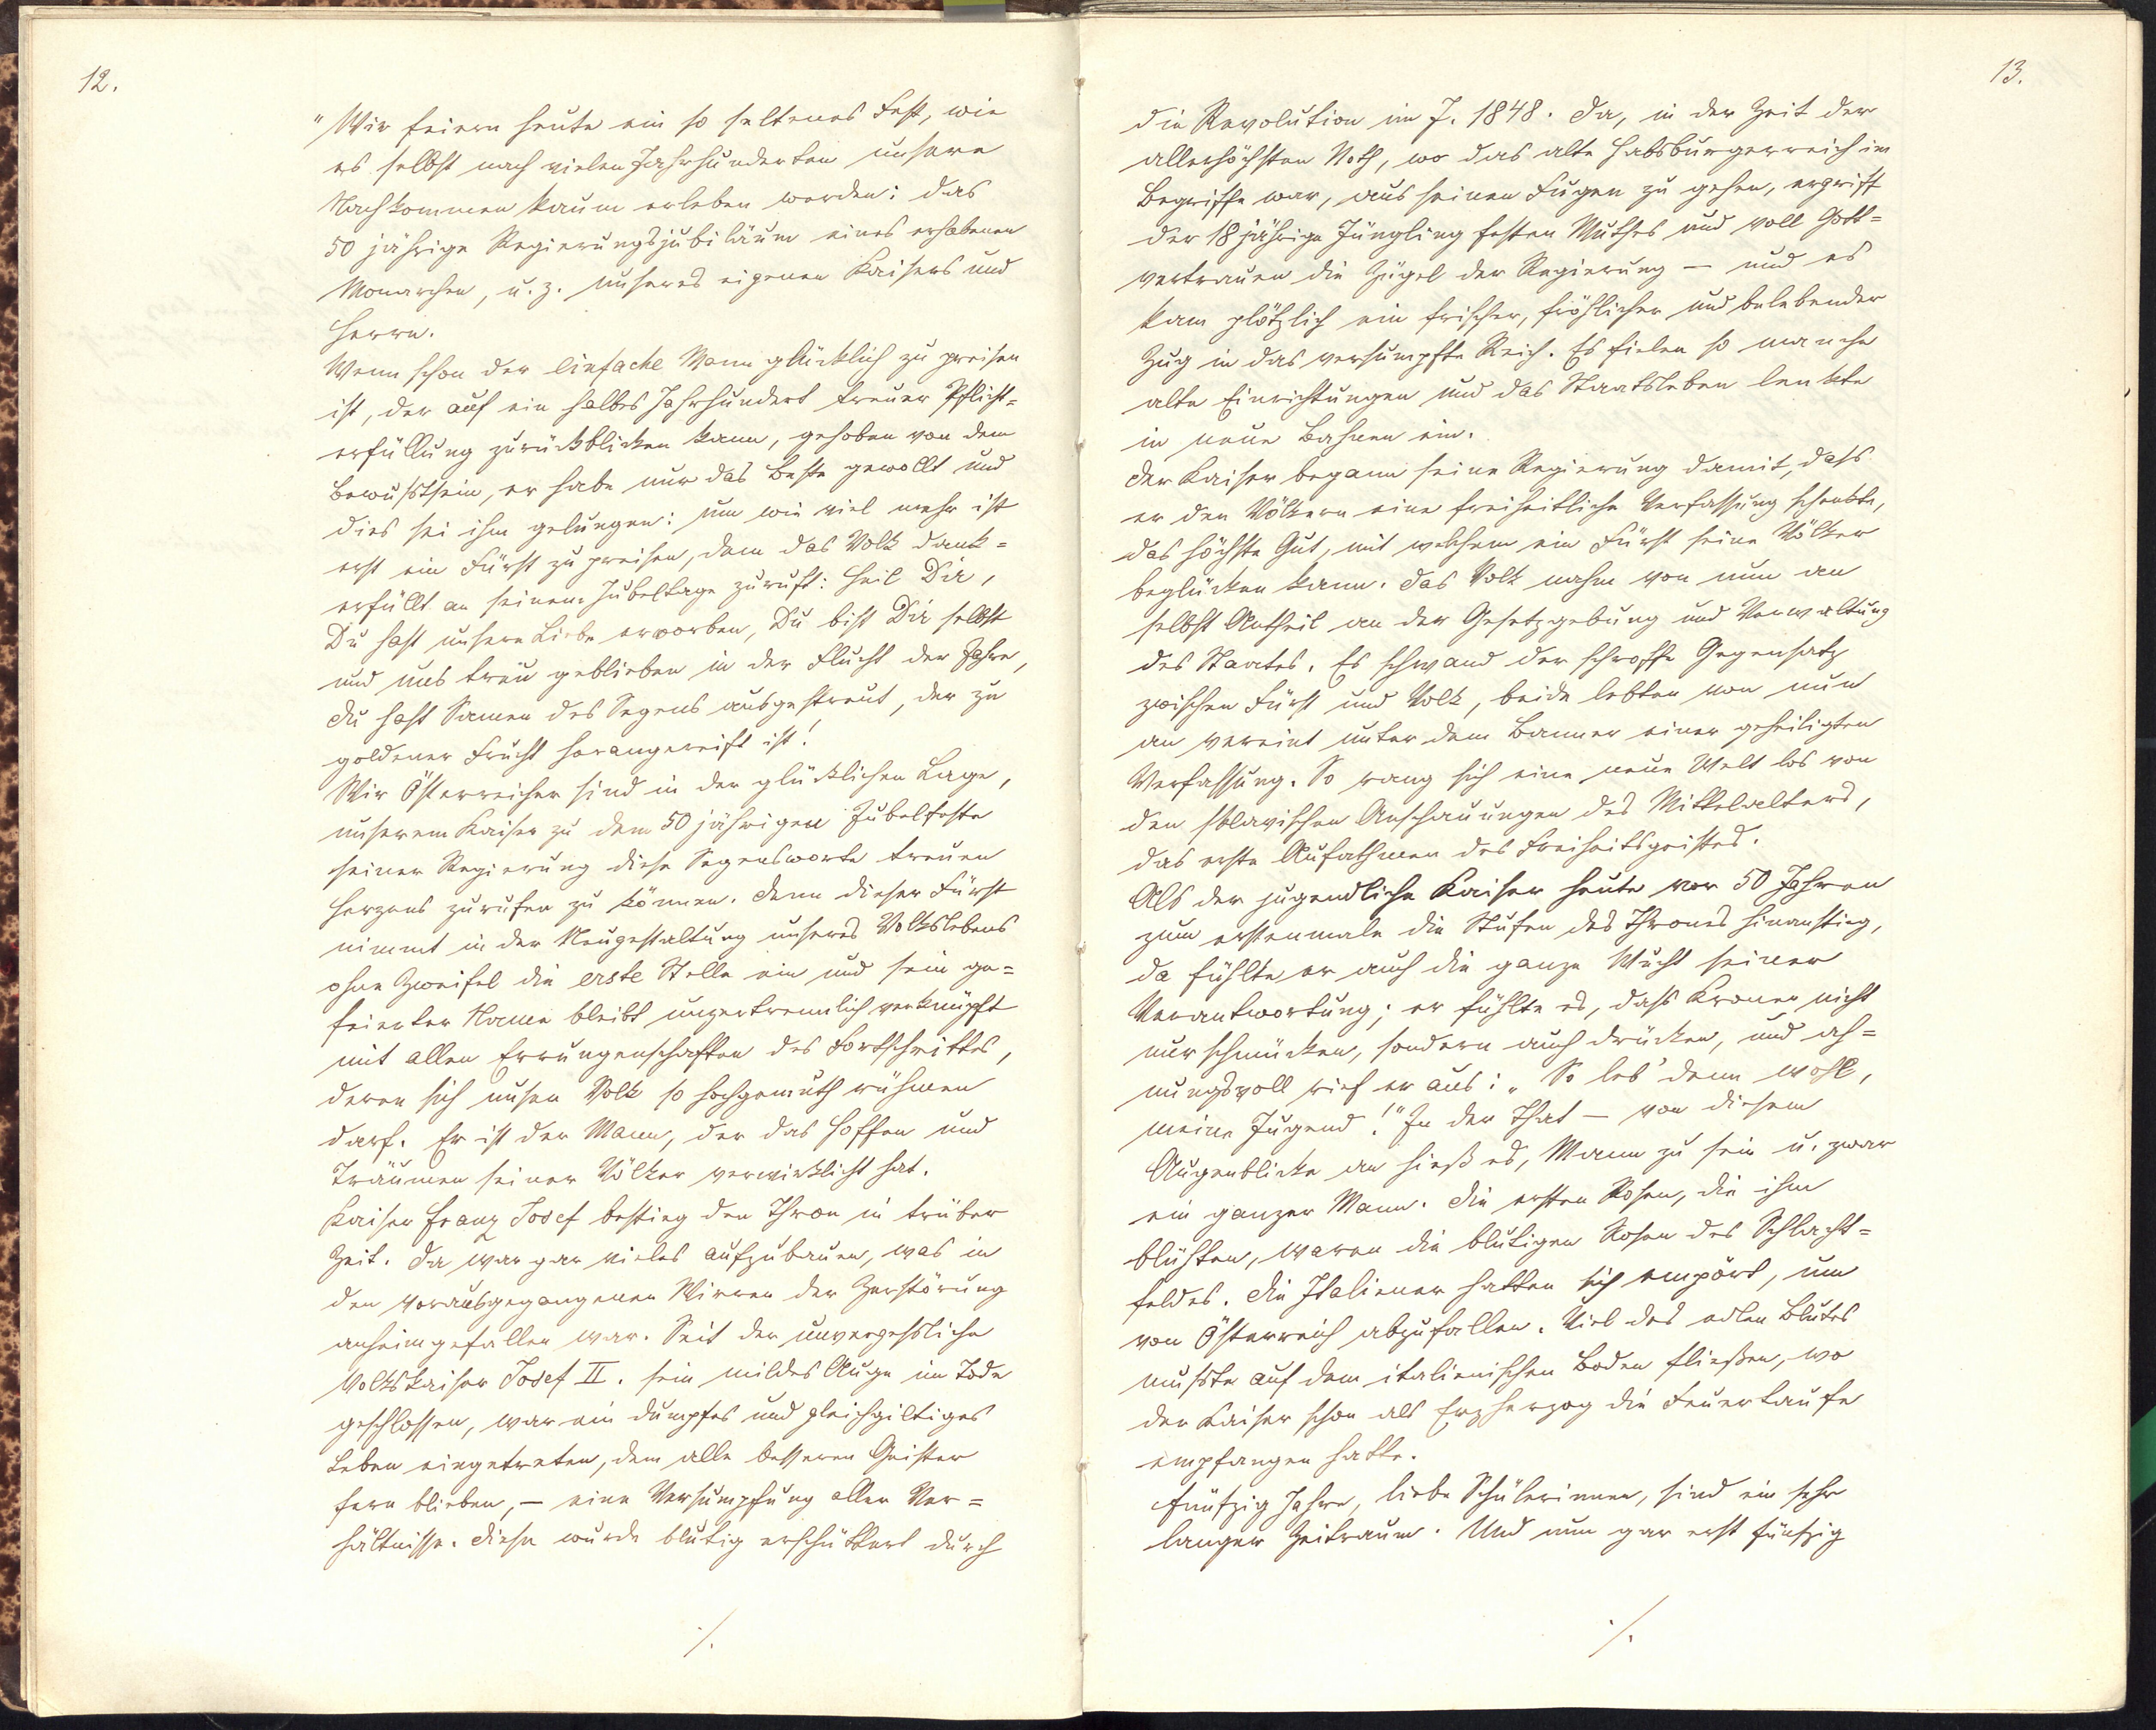 12.
"Wir feiern heute ein so seltenes Fest, wie
es selbst nach vielen Jahrhunderten unsere
Nachkommen kaum erleben werden: das
50 jährige Regierungsjubiläum eines erhabenen
Monarchen, u. z. unseres eigenen Kaisers und
Herrn.
Wenn schon der einfache Mann glücklich zu preisen
ist, der auf ein halbes Jahrhundert treuer Pflicht=
erfüllung zurückblicken kann, gehoben von dem
Bewußtsein, er habe nur das Beste gewollt und
dies sei ihm gelungen: um wie viel mehr ist
erst ein Fürst zu preisen, dem das Volk dank=
erfüllt an seinem Jubeltage zuruft: Heil Dir,
Du hast unsere Liebe erworben, Du bist Dir selbst
und uns treu geblieben in der Flucht der Jahre,
Du hast Samen des Segens ausgestreut, der zu
goldener Frucht herangereift ist!
Wir Österreicher sind in der glücklichen Lage,
unserem Kaiser zu dem 50 jährigen Jubelfeste
seiner Regierung diese Segensworte treuen
Herzens zurufen zu können. Denn dieser Fürst
nimmt in der Neugestaltung unseres Volkslebens
ohne Zweifel die erste Stelle ein und sein ge=
feierter Name bleibt unzertrennlich verknüpft
mit allen Errungenschaften des Fortschrittes,
deren sich unser Volk so hochgemuth rühmen
darf. Er ist der Mann, der das Hoffen und
Träumen seiner Völker verwirklicht hat.
Kaiser Franz Josef bestieg den Thron in trüber
Zeit. Da war gar vieles aufzubauen, was in
den vorausgegangenen Wirren der Zerstörung
anheimgefallen war. Seit der unvergeßliche
Volkskaiser Josef II. sein mildes Auge im Tode
geschlossen, war ein dumpfes und gleichgiltiges
Leben eingetreten, dem alle besseren Geister
fern blieben, – eine Versumpfung aller Ver=
hältnisse. Diese wurde blutig erschüttert durch
./.
13.
die Revolution im J. 1848. Da, in der Zeit der
allerhöchsten Noth, wo das alte Habsburgerreich im
Begriffe war, aus seinen Fugen zu gehen, ergriff
der 18 jährige Jüngling festen Muthes und voll Gott=
vertrauen die Zügel der Regierung – und es
kam plötzlich ein frischer, fröhlicher und belebender
Zug in das versumpfte Reich. Es fielen so manche
alte Einrichtungen und das Staatsleben lenkte
in neue Bahnen ein.
Der Kaiser begann seine Regierung damit, daß
er den Völkern eine freiheitliche Verfassung schenkte,
das höchste Gut, mit welchem ein Fürst seine Völker
beglücken kann. Das Volk nahm von nun an
selbst Antheil an der Gesetzgebung und Verwaltung
des Staates. Es schwand der schroffe Gegensatz
zwischen Fürst und Volk, beide lebten von nun
an vereint unter dem Banner einer geheiligten
Verfassung. So rang sich eine neue Welt los von
den sklavischen Anschauungen des Mittelalters,
das erste Aufathmen des Freiheitsgeistes.
Als der jugendliche Kaiser heute vor 50 Jahren
zum erstenmale die Stufen des Thrones hinanstieg,
da fühlte er auch die ganze Wucht seiner
Verantwortung; er fühlte es, daß Kronen nicht
nur schmücken, sondern auch drücken, und ah=
nungsvoll rief er aus: „So leb' denn wohl,
meine Jugend!" In der That – von diesem
Augenblicke an hieß es, Mann zu sein u. zwar
ein ganzer Mann. Die ersten Rosen, die ihm
blühten, waren die blutigen Rosen des Schlacht=
feldes. Die Italiener hatten sich empört, um
von Österreich abzufallen. Viel des edlen Blutes
mußte auf dem italienischen Boden fließen, wo
der Kaiser schon als Erzherzog die Feuertaufe
empfangen hatte.
Fünfzig Jahre, liebe Schülerinnen, sind ein sehr
langer Zeitraum. Und nun gar erst fünfzig
./.